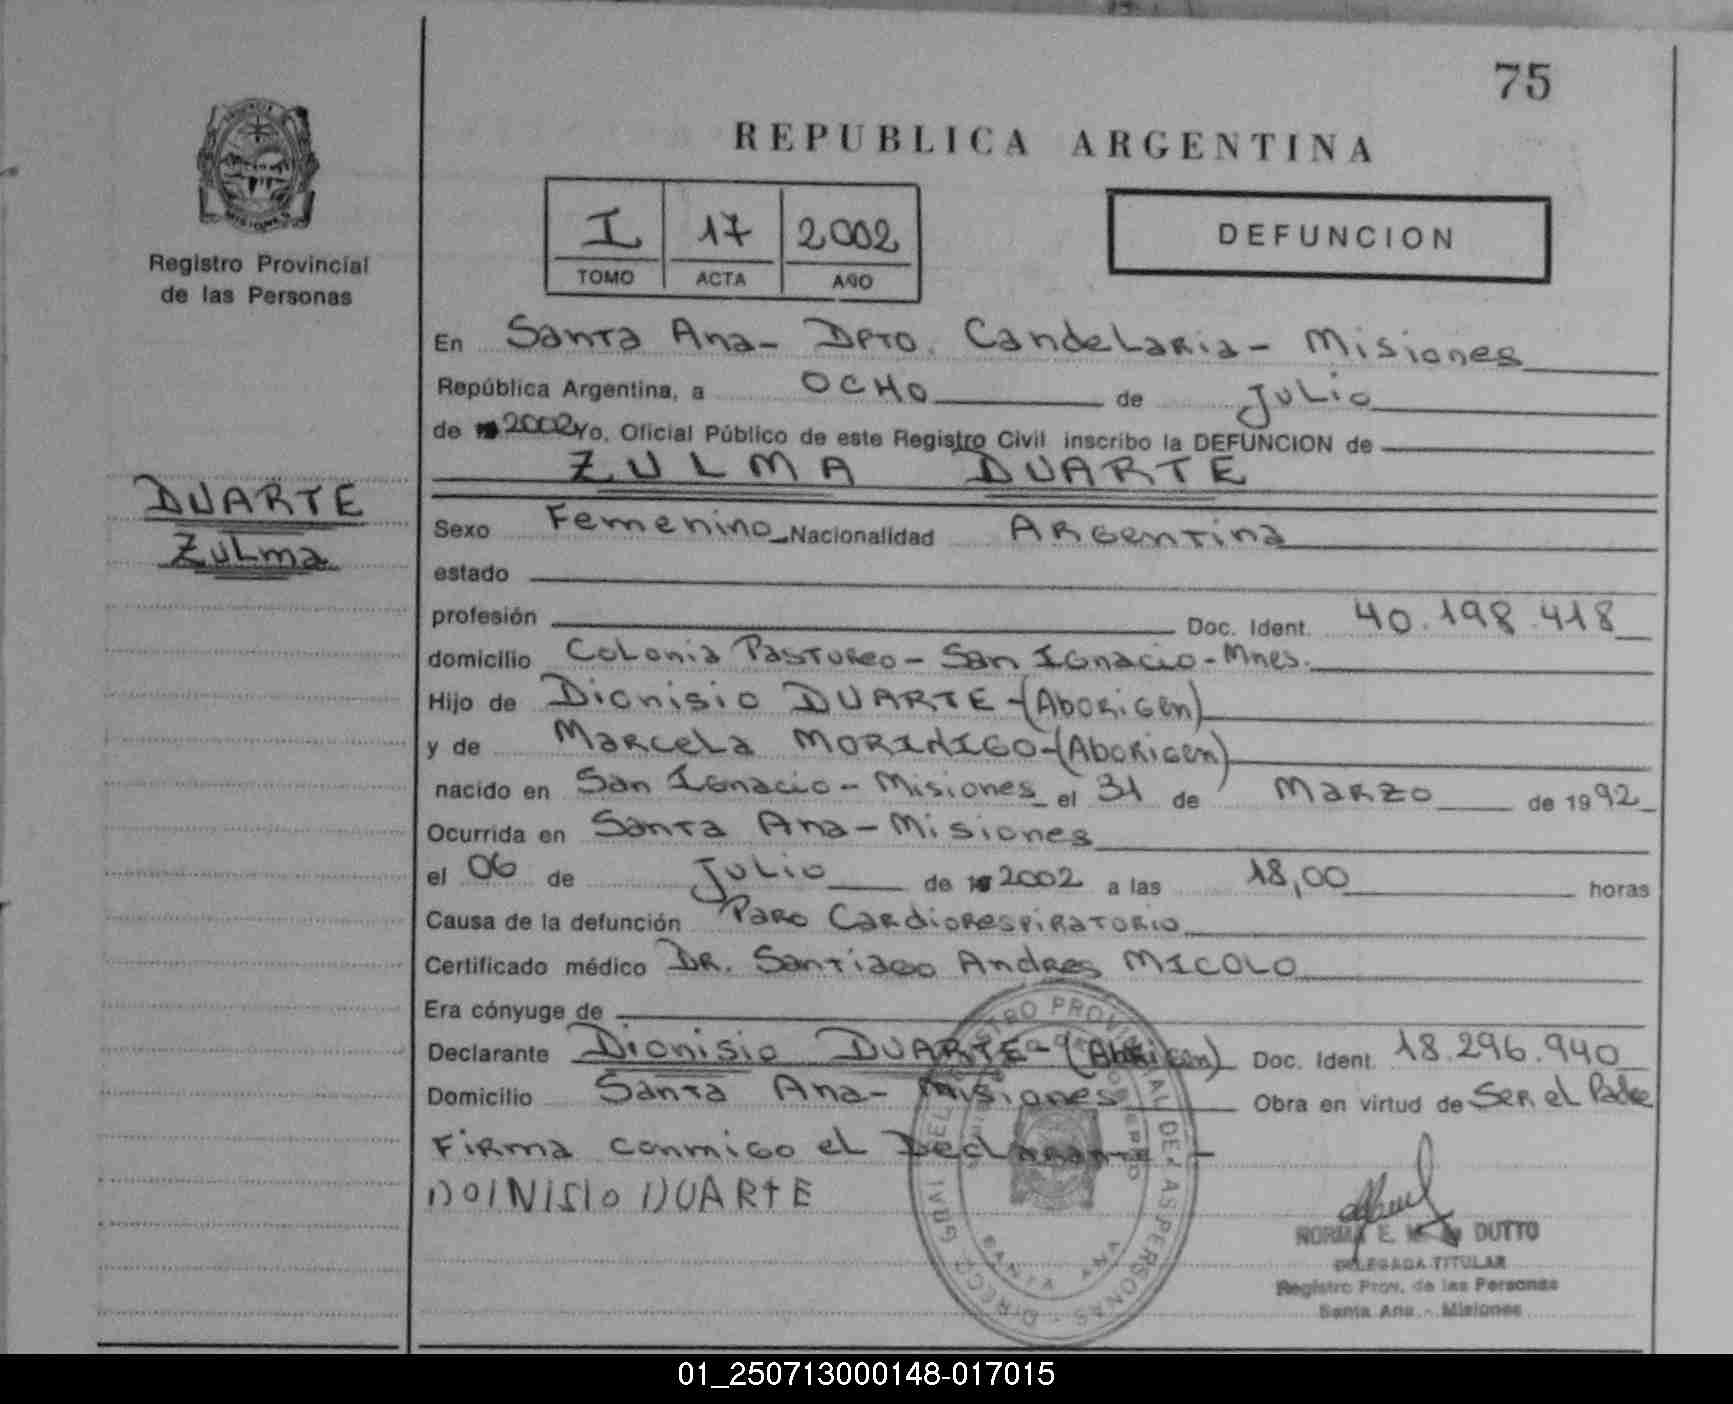 75
REPUBLICA ARGENTINA
I 17 2002
TOMO ACTA AÑO
DEFUNCION
Registro Provincial
de las Personas
DUARTE
Zulma
En Santa Ana - Dpto. Candelaria - Misiones
República Argentina, a OCHO de Julio
de 2002 Yo, Oficial Público de este Registro Civil inscribo la DEFUNCION de
ZULMA DUARTE
Sexo Femenino Nacionalidad Argentina
estado
profesión Doc. Ident. 40.198.418
domicilio Colonia Pastoreo - San Ignacio - Mnes.
Hijo de Dionisio DUARTE - (Aborigen)
y de Marcela MORINIGO - (Aborigen)
nacido en San Ignacio - Misiones el 31 de Marzo de 1992
Ocurrida en Santa Ana - Misiones
el 06 de Julio de 2002 a las 18,00 horas
Causa de la defunción Paro Cardiorespiratorio
Certificado médico DR. Santiago Andres MICOLO
Era cónyuge de
Declarante Dionisio DUARTE - (Aborigen) Doc. Ident. 18.296.940
Domicilio Santa Ana - Misiones Obra en virtud de Ser el Padre
Firma conmigo el Declarante -
DOINISIO DUARTE
SANTA ANA
NORMA E. DUTTO
DELEGADA TITULAR
Registro Prov. de las Personas
Santa Ana - Misiones
01_250713000148-017015